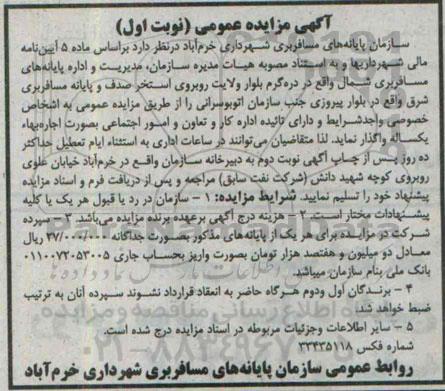 آگهی مزایده عمومی (نوبت اول)
سازمان پایانه‌های مسافربری شهرداری خرم‌آباد درنظر دارد براساس ماده ۵ آیین‌نامه
مالی شهرداریها و به استناد مصوبه هیات مدیره سازمان، مدیریت و اداره پایانه‌های
مسافربری شمال واقع در دره‌گرم بلوار ولایت روبروی استخر صدف و پایانه مسافربری
شرق واقع در بلوار پیروزی جنب سازمان اتوبوسرانی را از طریق مزایده عمومی به اشخاص
خصوصی واجدشرایط و دارای تائیده اداره کار و تعاون و امور اجتماعی بصورت اجاره‌بهاء
یکساله واگذار نماید. لذا متقاضیان می‌توانند در ساعات اداری به استثناء ایام تعطیل حداکثر
ده روز پس از چاپ آگهی نوبت دوم به دبیرخانه سازمان واقع در خرم‌آباد خیابان علوی
روبروی کوچه شهید دانش (شرکت نفت سابق) مراجعه و پس از دریافت فرم و اسناد مزایده
پیشنهاد خود را تسلیم نمایید. شرایط مزایده: ۱ – سازمان در رد یا قبول هر یک یا کلیه
پیشنهادات مختار است. ۲ – هزینه درج آگهی برعهده برنده مزایده می‌باشد. ۳ – سپرده
شرکت در مزایده برای هر یک از پایانه‌های مذکور بصورت جداگانه ریال
معادل دو میلیون و هفتصد هزار تومان بصورت واریز بحساب جاری ۰۱۱۰۰۷۲۰۵۳۰۰۵
بانک ملی بنام سازمان میباشد.
۴ – برندگان اول ودوم هرگاه حاضر به انعقاد قرارداد نشوند سپرده آنان به ترتیب
ضبط خواهد شد.
۵ – سایر اطلاعات وجزئیات مربوطه در اسناد مزایده درج شده است.
شماره فکس ۳۳۴۳۵۱۱۸
روابط عمومی سازمان پایانه‌های مسافربری شهرداری خرم‌آباد